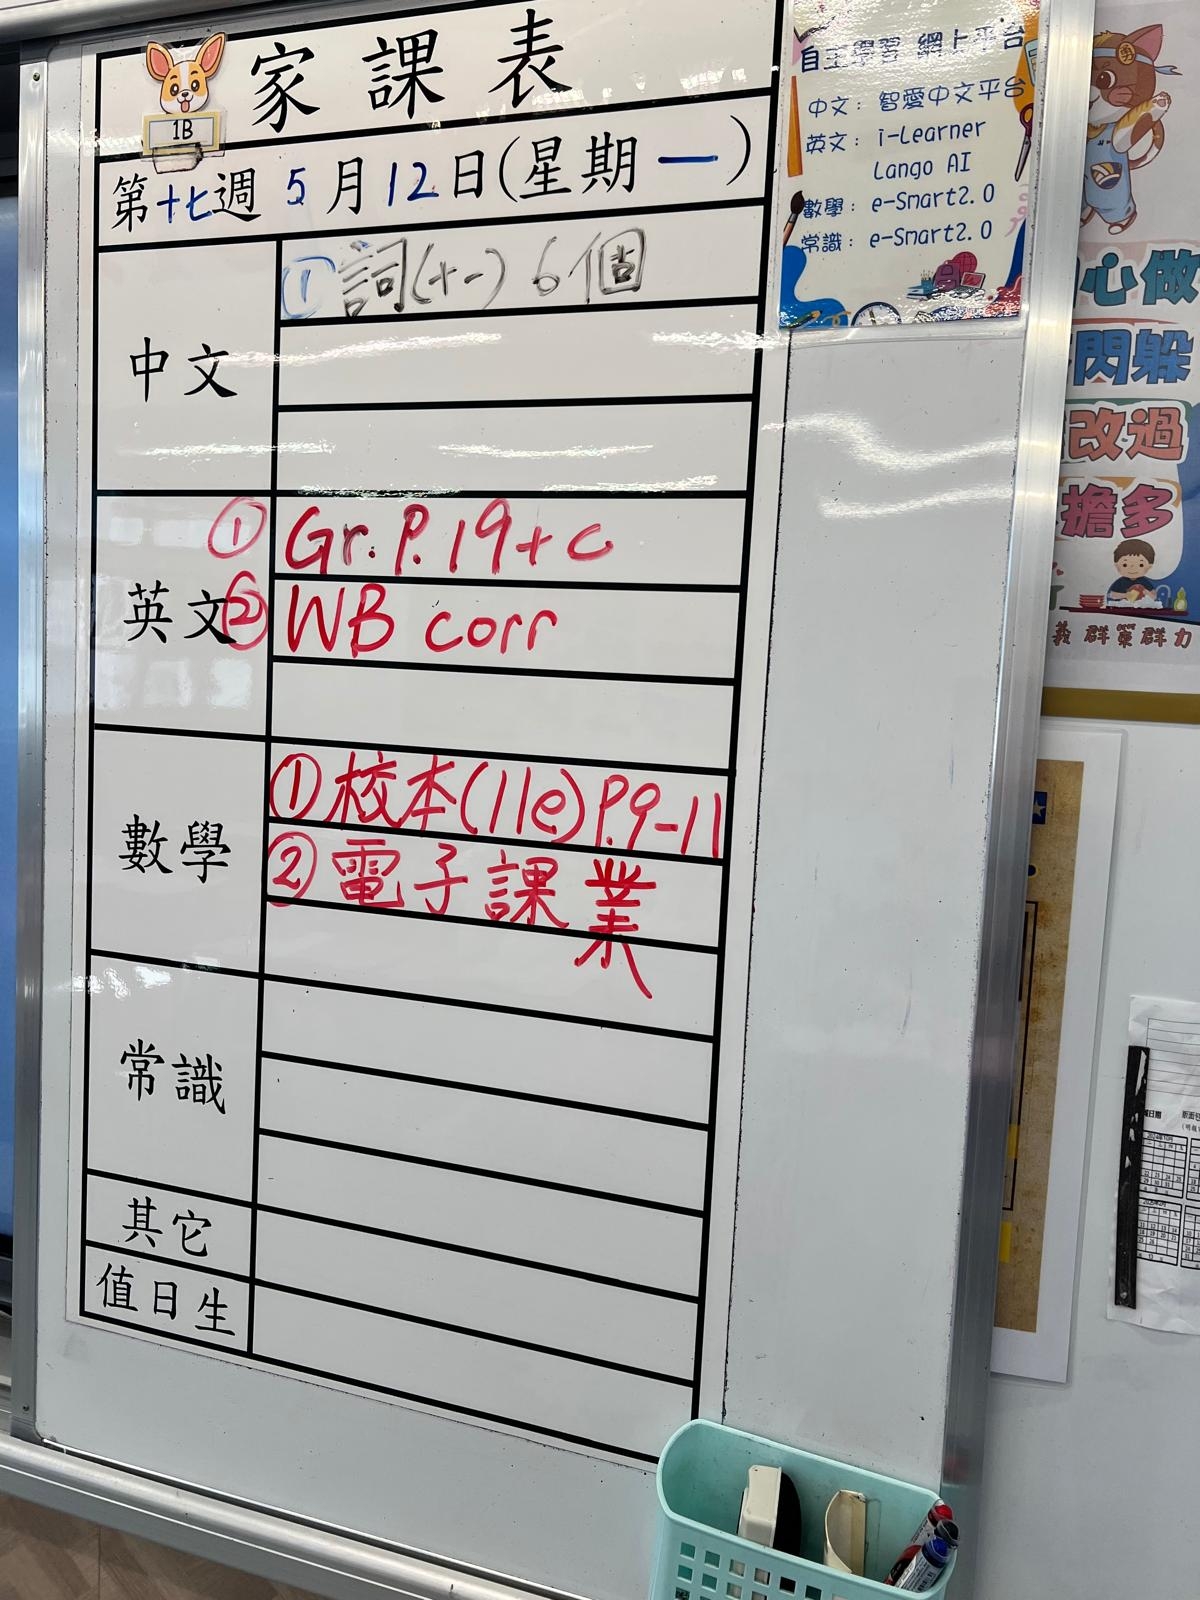 家課表
1B
第十七週 5月12日(星期一)
中文
① 詞(十一) 6個
英文
① Gr. P.19+c
② WB corr
數學
① 校本(11e) P.9-11
② 電子課業
常識
其它
值日生
自主學習 網上平台
中文： 智愛中文平台
英文： i-Learner
Lango AI
數學： e-Smart2.0
常識： e-Smart2.0
心做
閃躲
改過
擔多
義 群策群力